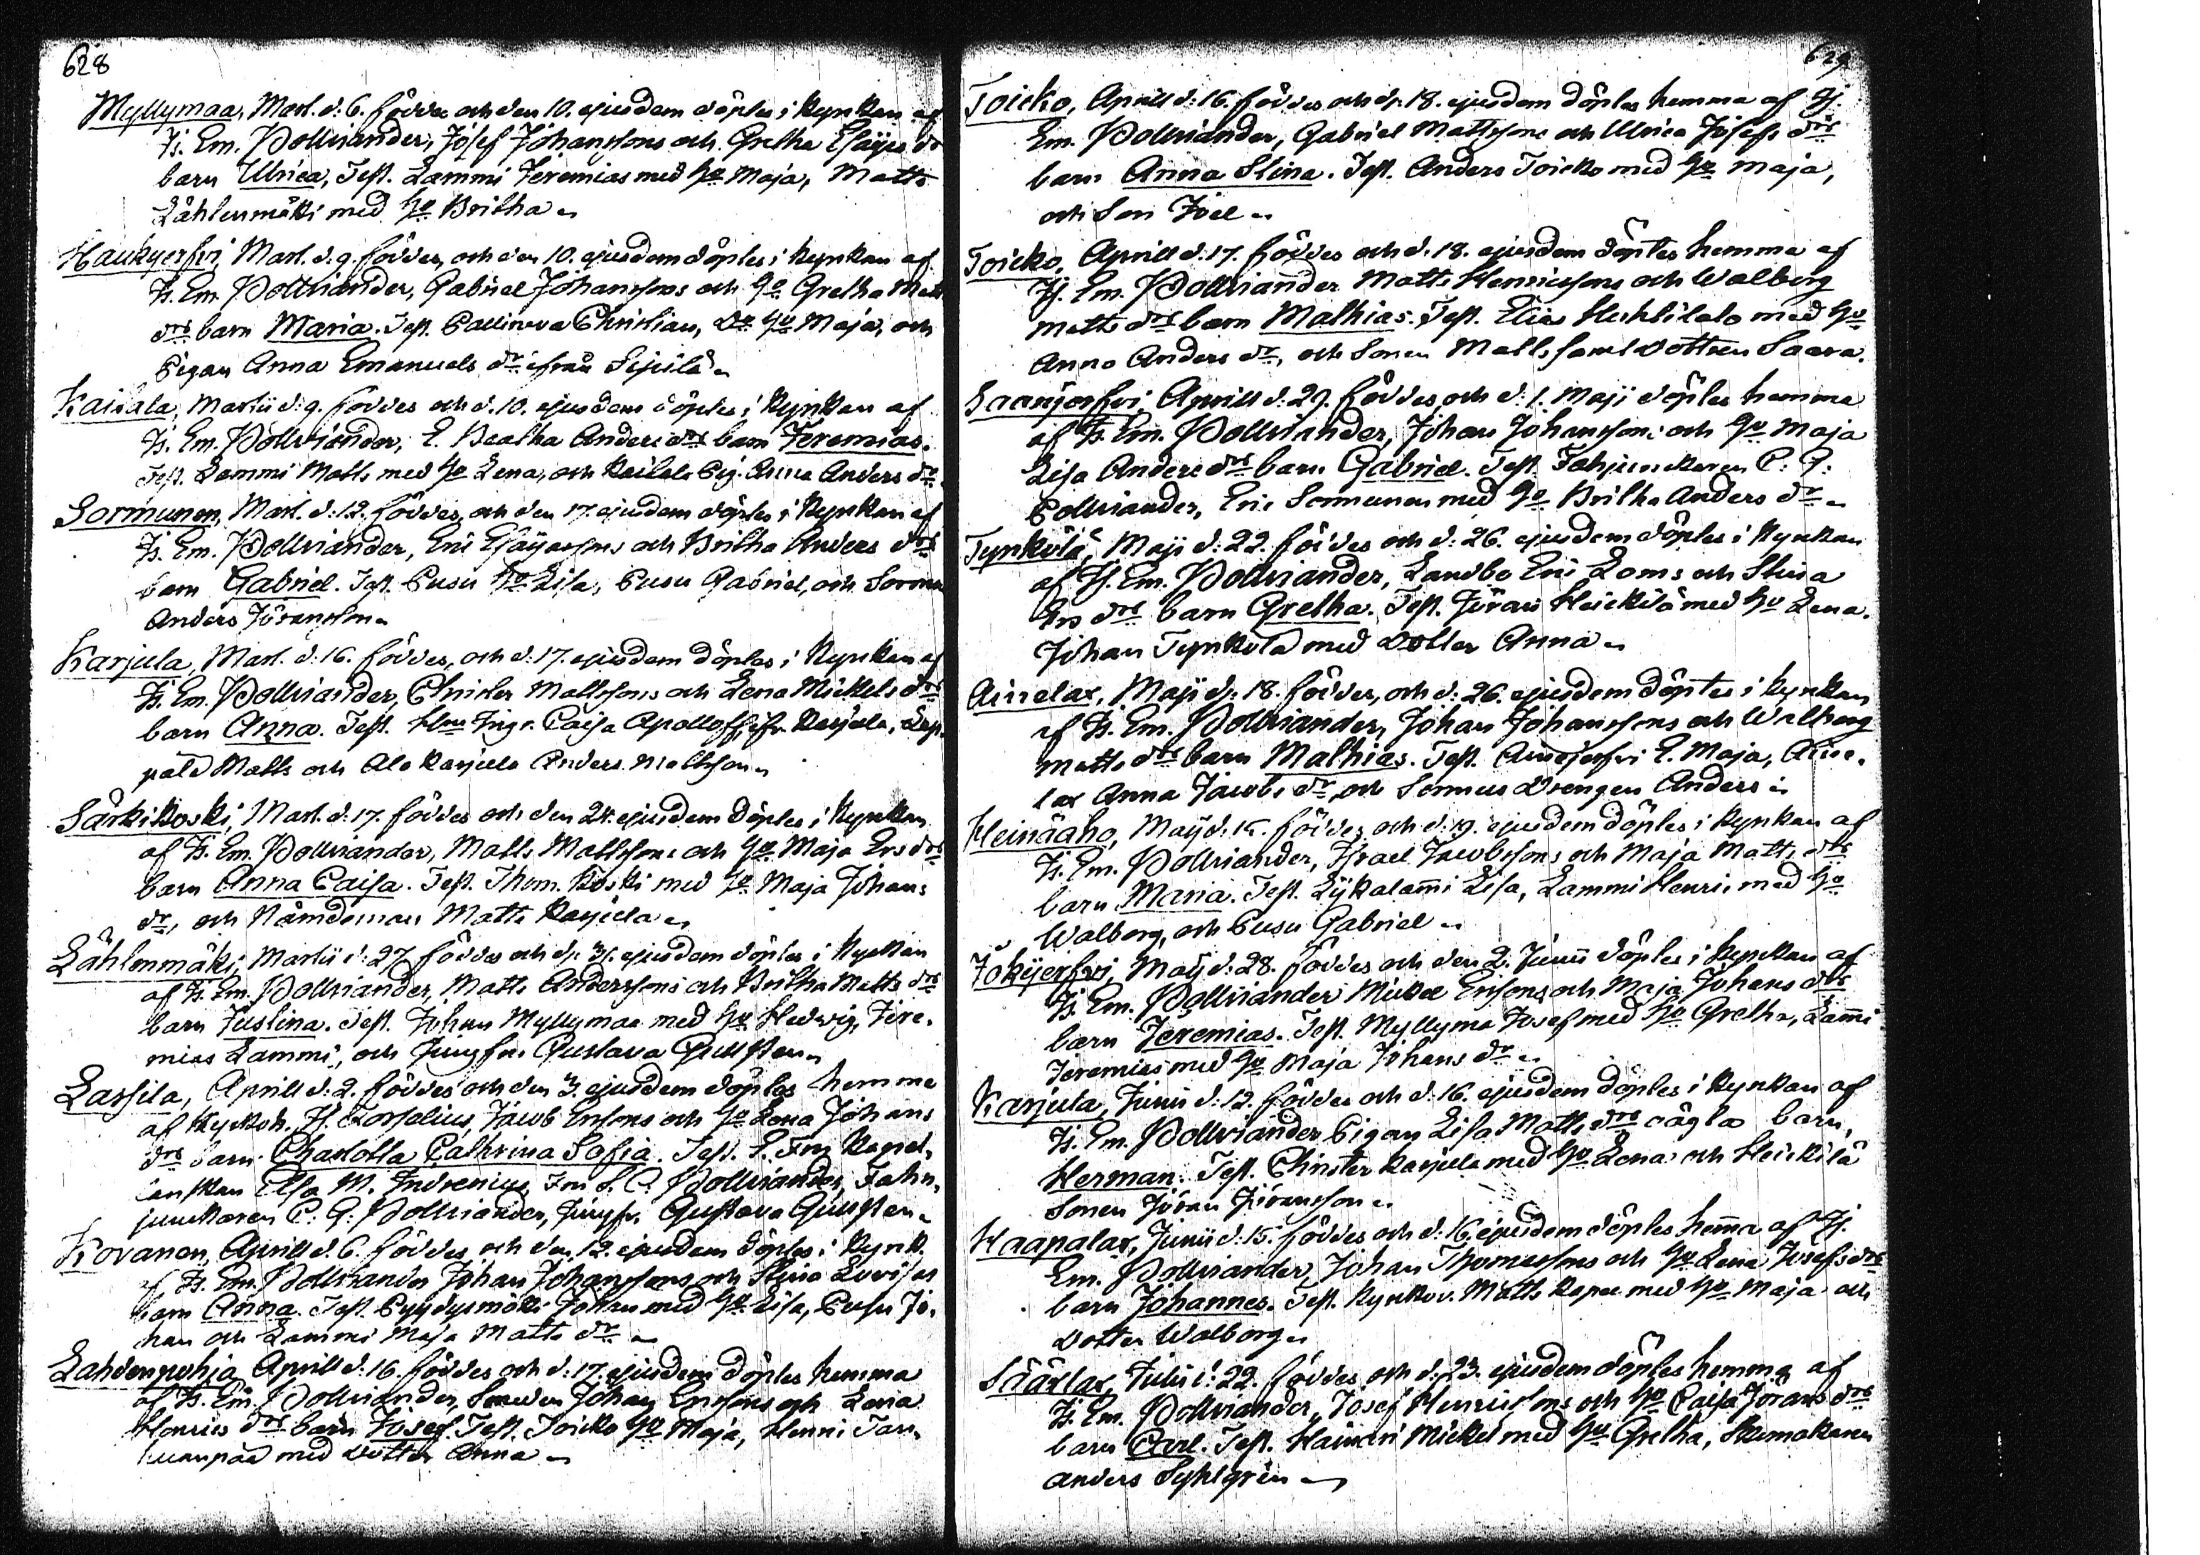 628
Myllymaa, Mart. d. 6. föddes och den 10. ejusdem döptes i Kyrkan af
H. Em. Pollviander, Josef Johanssons och Gretha Esajæ dr
barn Ulrica, Test. Lammi Jeremias med hu Maja, Matts
Lähteenmäki med hu Britha
Haukyerfvi, Mart. d. 9. föddes, och den 10. ejusdem döptes i Kyrkan af
H. Em. Pollviander, Gabriel Johanssons och hu Gretha Matts
drs barn Maria. Test. Christian, hu Maja, och
Pigan Anna Emanuels dr ifrån Sipilä
Kaisala, Martii d. 9. föddes och d. 10. ejusdem döptes i Kyrkan af
H. Em. Pollviander, E. Beatha Anders drs barn Jeremias.
Test. Lammi Matts med hu Lena, och Pig. Anna Anders dr
Sormunen, Mart. d. 12. föddes, och den 17. ejusdem döptes i Kyrkan af
H. Em. Pollviander, Eric Esajassons och Britha Anders drs
barn Gabriel. Test. Pusu hu Lisa, Pusu Gabriel, och Sormu
Anders Jöransson
Karjula, Mart. d. 16. föddes, och d. 17. ejusdem döptes i Kyrkan af
H. Em. Pollviander, Christer Mattssons och Lena Mickels drs
barn Anna. Test. Caisa Apolloff, ifr. Karjula,
Matts och Ala Karjula Anders Mattsson
Särkikoski, Mart. d. 17. föddes och den 24. ejusdem döptes i Kyrkan
af H. Em. Pollviander, Matts Mattssons och hu Maja Ers drs
barn Anna Caisa. Test. Thom. Koski med hu Maja Johans
dr, och Nämdeman Matts Karjula
Lähtenmäki, Martii d. 27 föddes och d. 31. ejusdem döptes i Kyrkan
af H. Em. Pollviander, Matts Anderssons och Britha Matts drs
barn Justina. Test. Johan Myllymaa med hu Hedwig, Jere-
mias Lammi, och Jungfru Gustava Gullsten
Lassila, Aprill d. 2. föddes och den 3. ejusdem döptes hemma
af Kyrkoh. H. Forselius, Jacob Erssons och hu Lena Johans
drs barn Charlotta Cathrina Sofia. Test. P. Fru Kapel-
anskan Elsa M. Indrenius, Fru S. C. Pollviander, Fahn-
junkaren C. G. Pollviander, Jungfr. Gustava Gullsten
Kovanen, Aprill d. 6. föddes och den 12. ejusdem döptes i Kyrk.
af H. Em. Pollviander Johan Johanssons och Stina Lovisas
barn Anna. Test. Pyydysmäki Johan med hu Lisa, Pusu Jo-
han och Lammi Maja Matts dr
Lahdenpohja Aprill d. 16. föddes och d. 17. ejusdem döptes hemma
af H. Em. Pollviander, Johan Erssons och Lena
Henrics drs barn Josef. Test. Toicko hu Maja, Henric Tar-
med dotter Anna
629
Toicko, Aprill d. 16. föddes och d. 18. ejusdem döptes hemma af H.
Em. Pollviander, Gabriel Mattssons och Ulrica Josefs drs
barn Anna Stina. Test. Anders Toicko med hu Maja,
och Son Joel
Toicko, Aprill d. 17. föddes och d. 18. ejusdem döptes hemma af
H. Em. Pollviander Matts Henricssons och Walborg
Matts drs barn Mathias. Test. Elias med hu
Anna Anders dr, och Sonen Matts samt dottren Saara.
Saarijerfvi Aprill d. 29. föddes, och d. 1. Maji döptes hemma
af H. Em. Pollviander, Johan Johanssons och hu Maja
Lisa Anders drs barn Gabriel. Test. Fahnjunckaren C. G.
Pollviander, Eric Sormunen med hu Britha Anders dr
Tynkölä, Maji d. 22. föddes och d. 26. ejusdem döptes i Kyrkan
af H. Em. Pollviander, Landbo Eric Loms och Stina
Ers drs barn Gretha. Test. Jöran Heickilä med hu Lena.
Johan Tynkölä med dotter Anna
Ainelax, Maji d. 18. föddes, och d. 26. ejusdem döptes i Kyrkan
af H. Em. Pollviander, Johan Johanssons och Walborg
Matts drs barn Mathias. Test. E. Maja, Aine-
lax Anna Jacobs dr, och drengen Anders
Heinäaho, Maij d. 15. föddes, och d. 19. ejusdem döptes i Kyrkan af
H. Em. Pollviander, Israel Jacobssons och Maja Matts drs
barn Maria. Test. Lykalammi Lisa, Lammi Henric med hu
Walborg, och Pusu Gabriel
Jokijerfvi, Maij d. 28. föddes och den 2. Junii döptes i Kyrkan af
H. Em. Pollviander Mickel Ersons och Maja Johans drs
barn Jeremias. Test. Myllyma Josef med hu Gretha, Lammi
Jeremias med hu Maja Johans dr
Karjula, Junii d. 12. föddes och d. 16. ejusdem döptes i Kyrkan af
H. Em. Pollviander Pigan Lisa Matts drs oägta barn,
Herman. Test. Christer Karjula med hu Lena och Heickilä
Sonen Jöran Jöransson
Haapalax, Junii d. 15. föddes och d. 16. ejusdem döptes hemma af H.
Em. Pollviander, Johan Thomassons och hu Lena Josefs drs
barn Johannes. Test. Kyrkov. Matts med hu Maja och
dotter Walborg
Säärlax, Julii d. 22. föddes, och d. 23. ejusdem döptes hemma af
H. Em. Pollviander, Josef Henricssons och hu Caisa Jörans drs
barn Carl. Test. Häiväri Mickel med hu Gretha, Skomakaren
Anders Syhlgrén